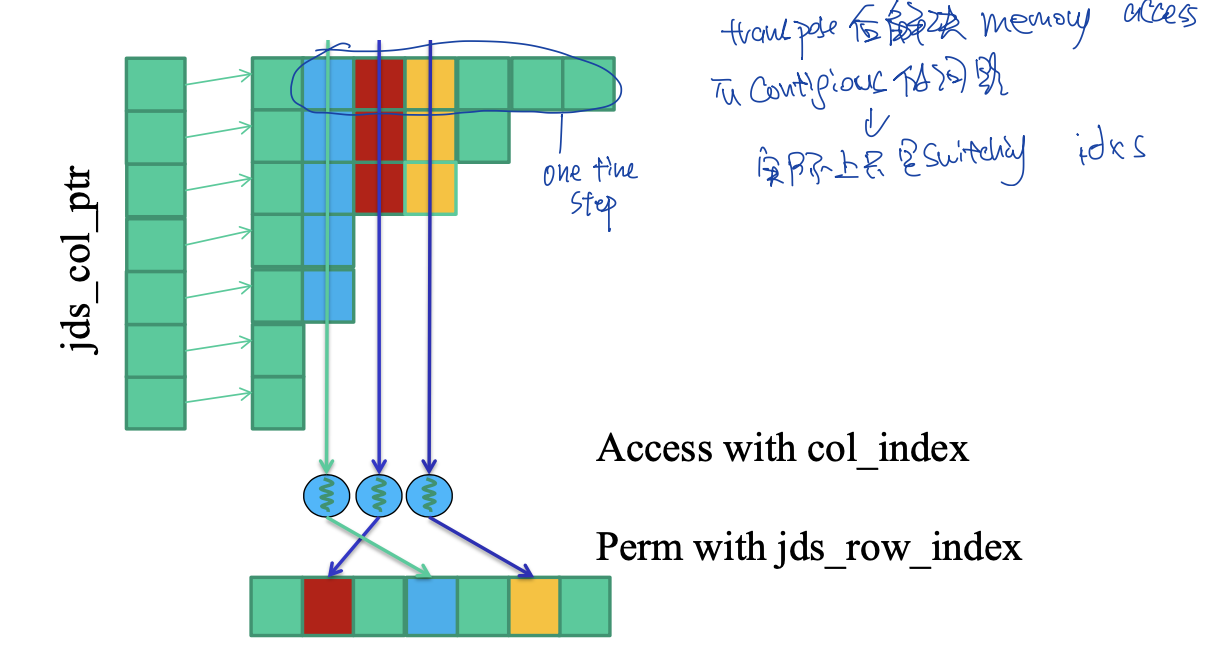 transpose 后解决 memory access
不 contigious 的问题
实际上只是 switching idxs
one time
step
jds_col_ptr
Access with col_index
Perm with jds_row_index